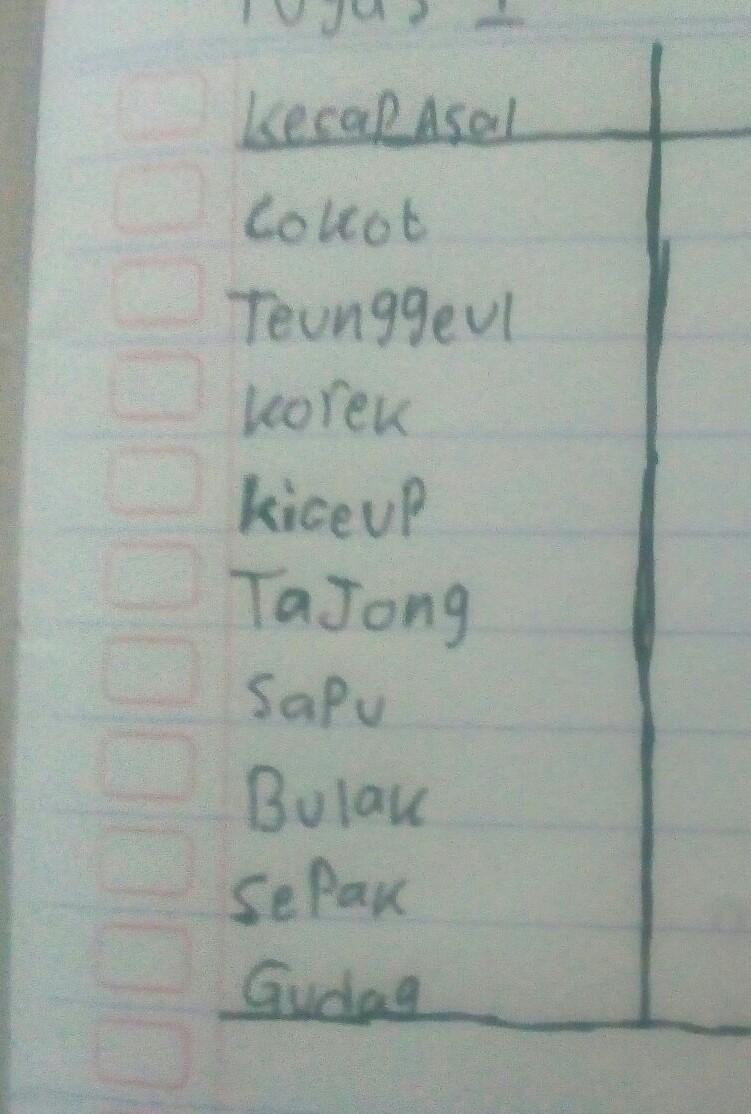 Tugas 1
Kecap Asal
Cokot
Teunggeul
Korek
Kiceup
Tajong
Sapu
Bulak
Sepak
Gudag